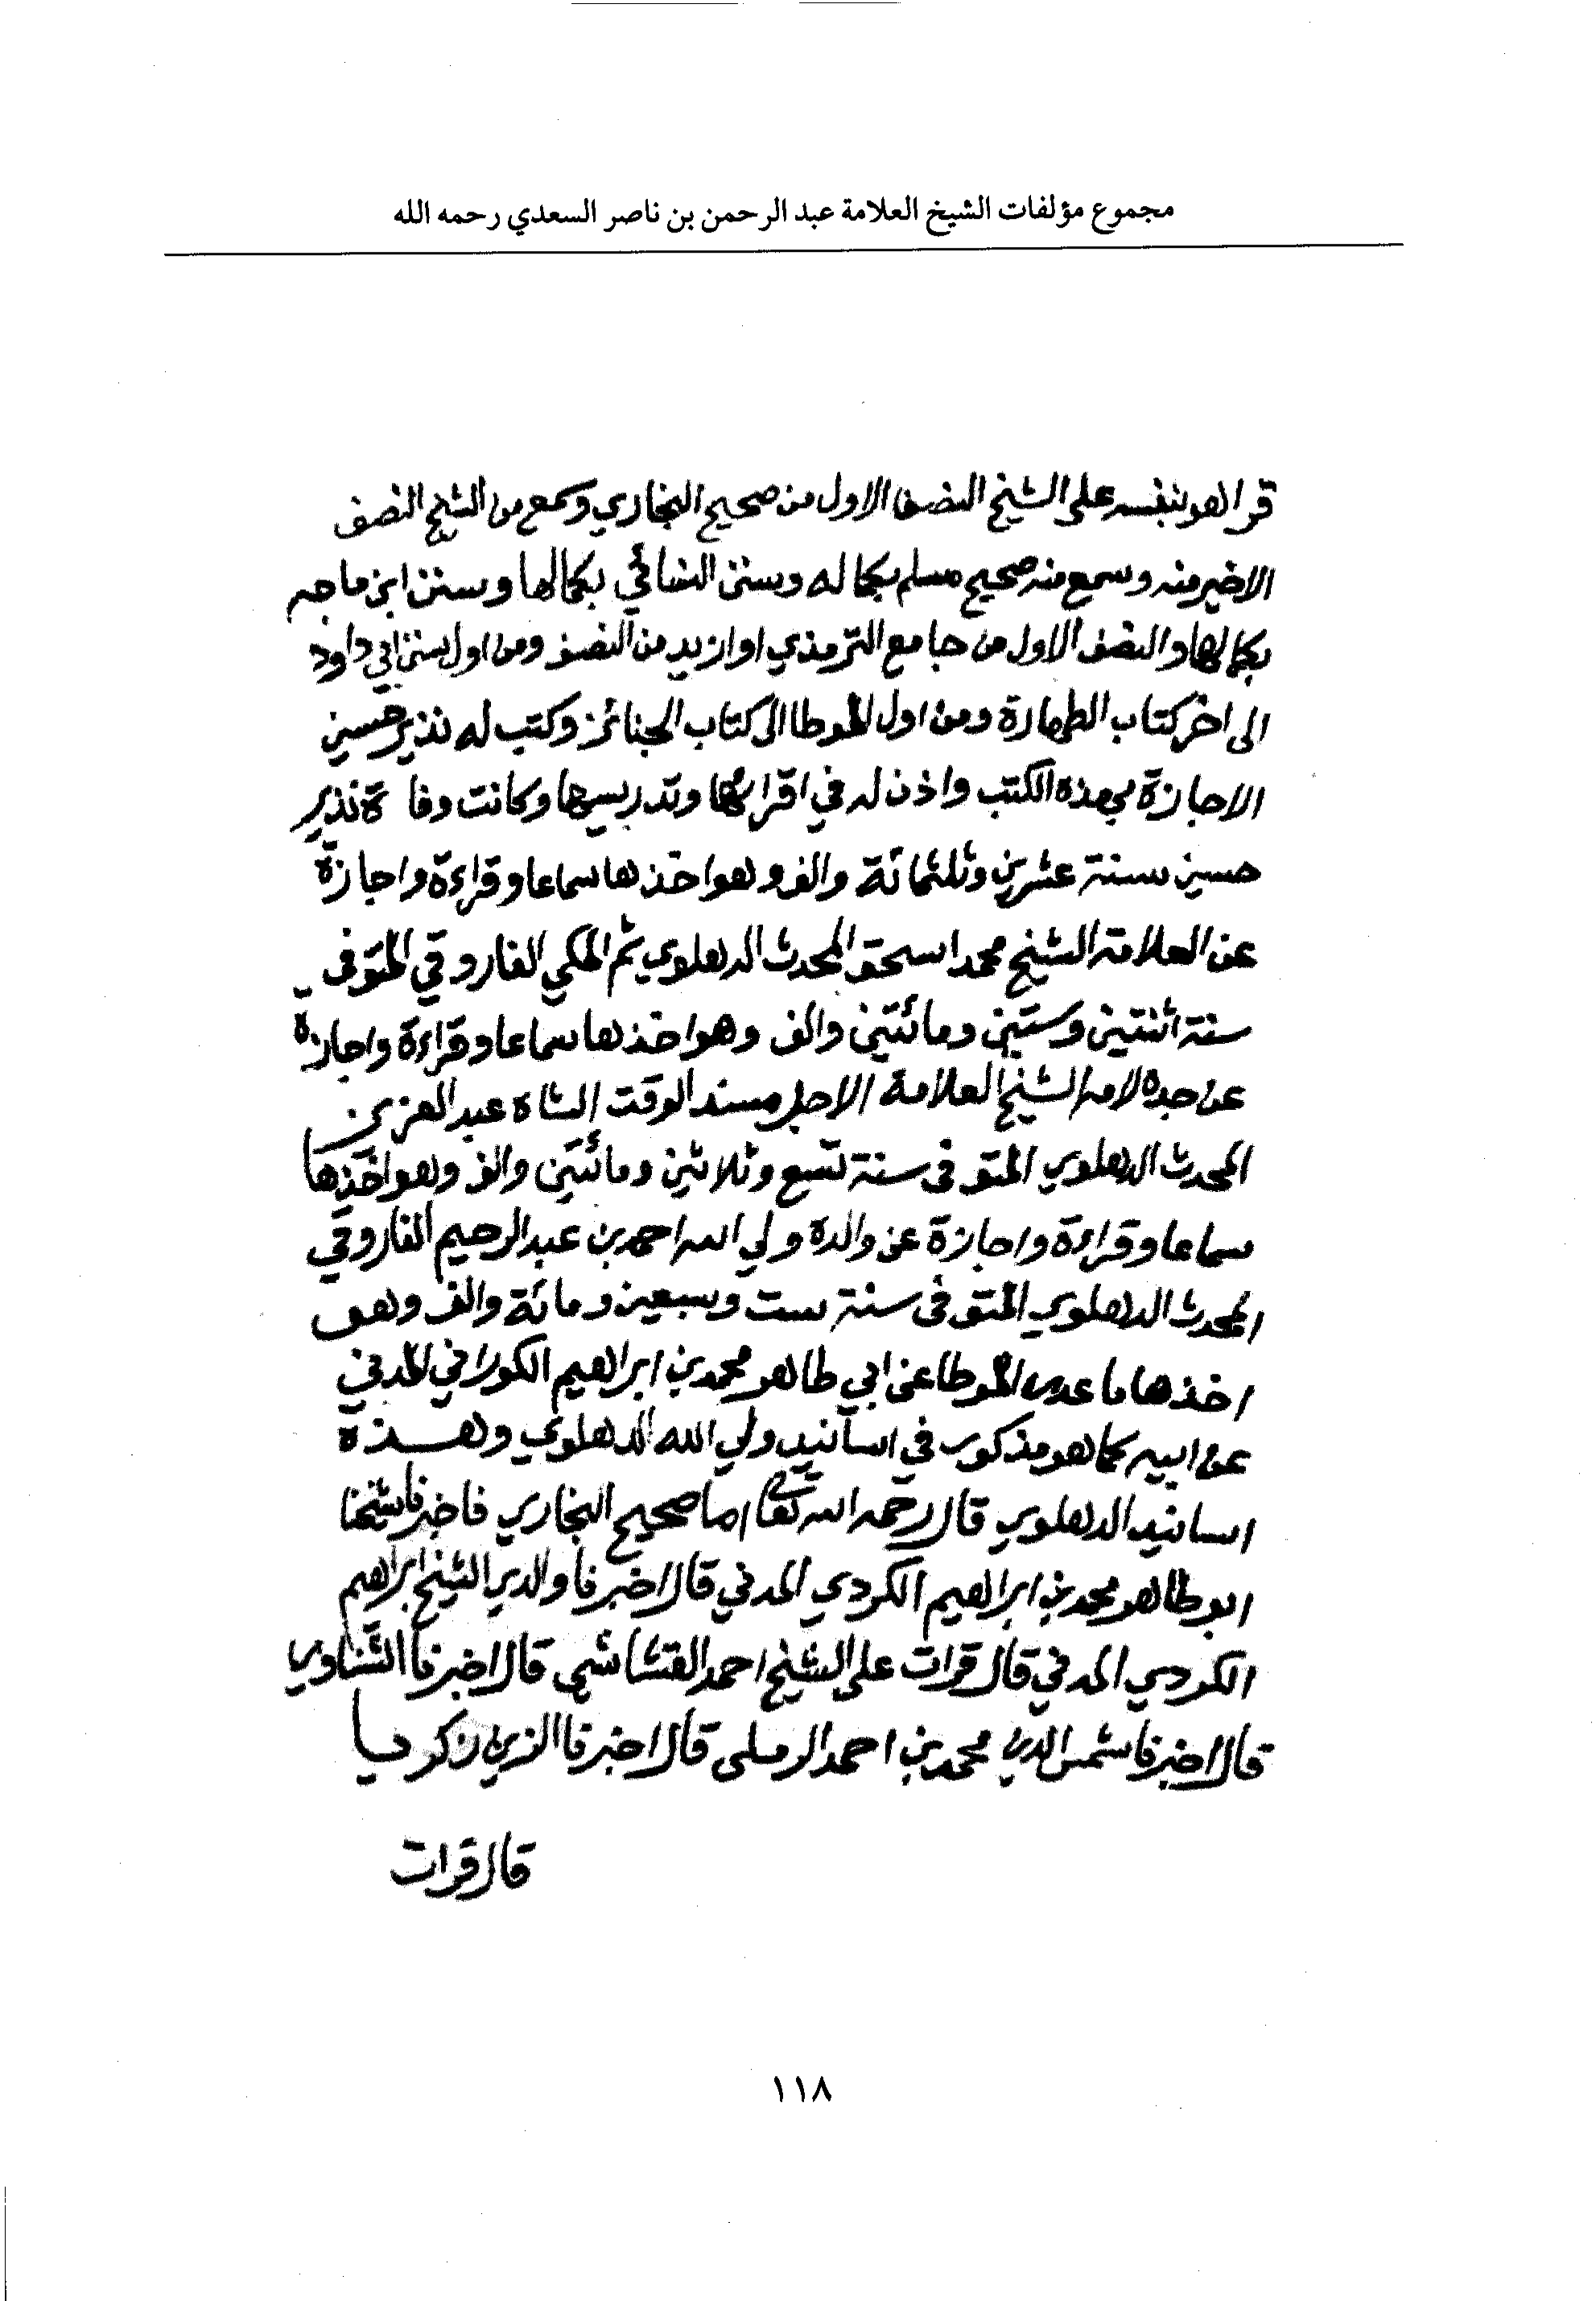 مجموع مؤلفات الشيخ العلامة عبد الرحمن بن ناصر السعدي رحمه الله
قرا هو بنفسه على الشيخ النصف الاول من صحيح البخاري وسمع من الشيخ النصف
الاخير منه وسمع منه صحيح مسلم بكماله وسنن النسائي بكمالها وسنن ابن ماجه
بكمالها والنصف الاول من جامع الترمذي او ازيد من النصف ومن اول سنن ابي داود
الى اخر كتاب الطهارة ومن اول الموطا الى كتاب الجنائز وكتب له نذير حسين
الاجازة بهذه الكتب واذن له في اقرائها وتدريسها وكانت وفاة نذير
حسين سنة عشرين وثلثمائة والف وهو اخذها سماعا وقراءة واجازة
عن العلامة الشيخ محمد اسحق المحدث الدهلوي ثم المكي الفاروقي المتوفى
سنة اثنتين وستين ومائتين والف وهو اخذها سماعا وقراءة واجازة
عن جده لامه الشيخ العلامة الاجل مسند الوقت الشاه عبد العزيز
المحدث الدهلوي المتوفى سنة تسع وثلاثين ومائتين والف وهو اخذها
سماعا وقراءة واجازة عن والده ولي الله احمد بن عبد الرحيم الفاروقي
المحدث الدهلوي المتوفى سنة ست وسبعين ومائة والف وهو
اخذها ما عدى الموطا عن ابي طاهر محمد بن ابراهيم الكوراني المدني
عن ابيه كما هو مذكور في اسانيد ولي الله الدهلوي وهذه
اسانيد الدهلوي قال رحمه الله تعالى اما صحيح البخاري فاخبرنا شيخنا
ابو طاهر محمد بن ابراهيم الكردي المدني قال اخبرنا والدي الشيخ ابراهيم
الكردي المدني قال قرات على الشيخ احمد القشاشي قال اخبرنا الشناوي
قال اخبرنا شمس الدين محمد بن احمد الرملي قال اخبرنا الزين زكريا
قال قرات
١١٨